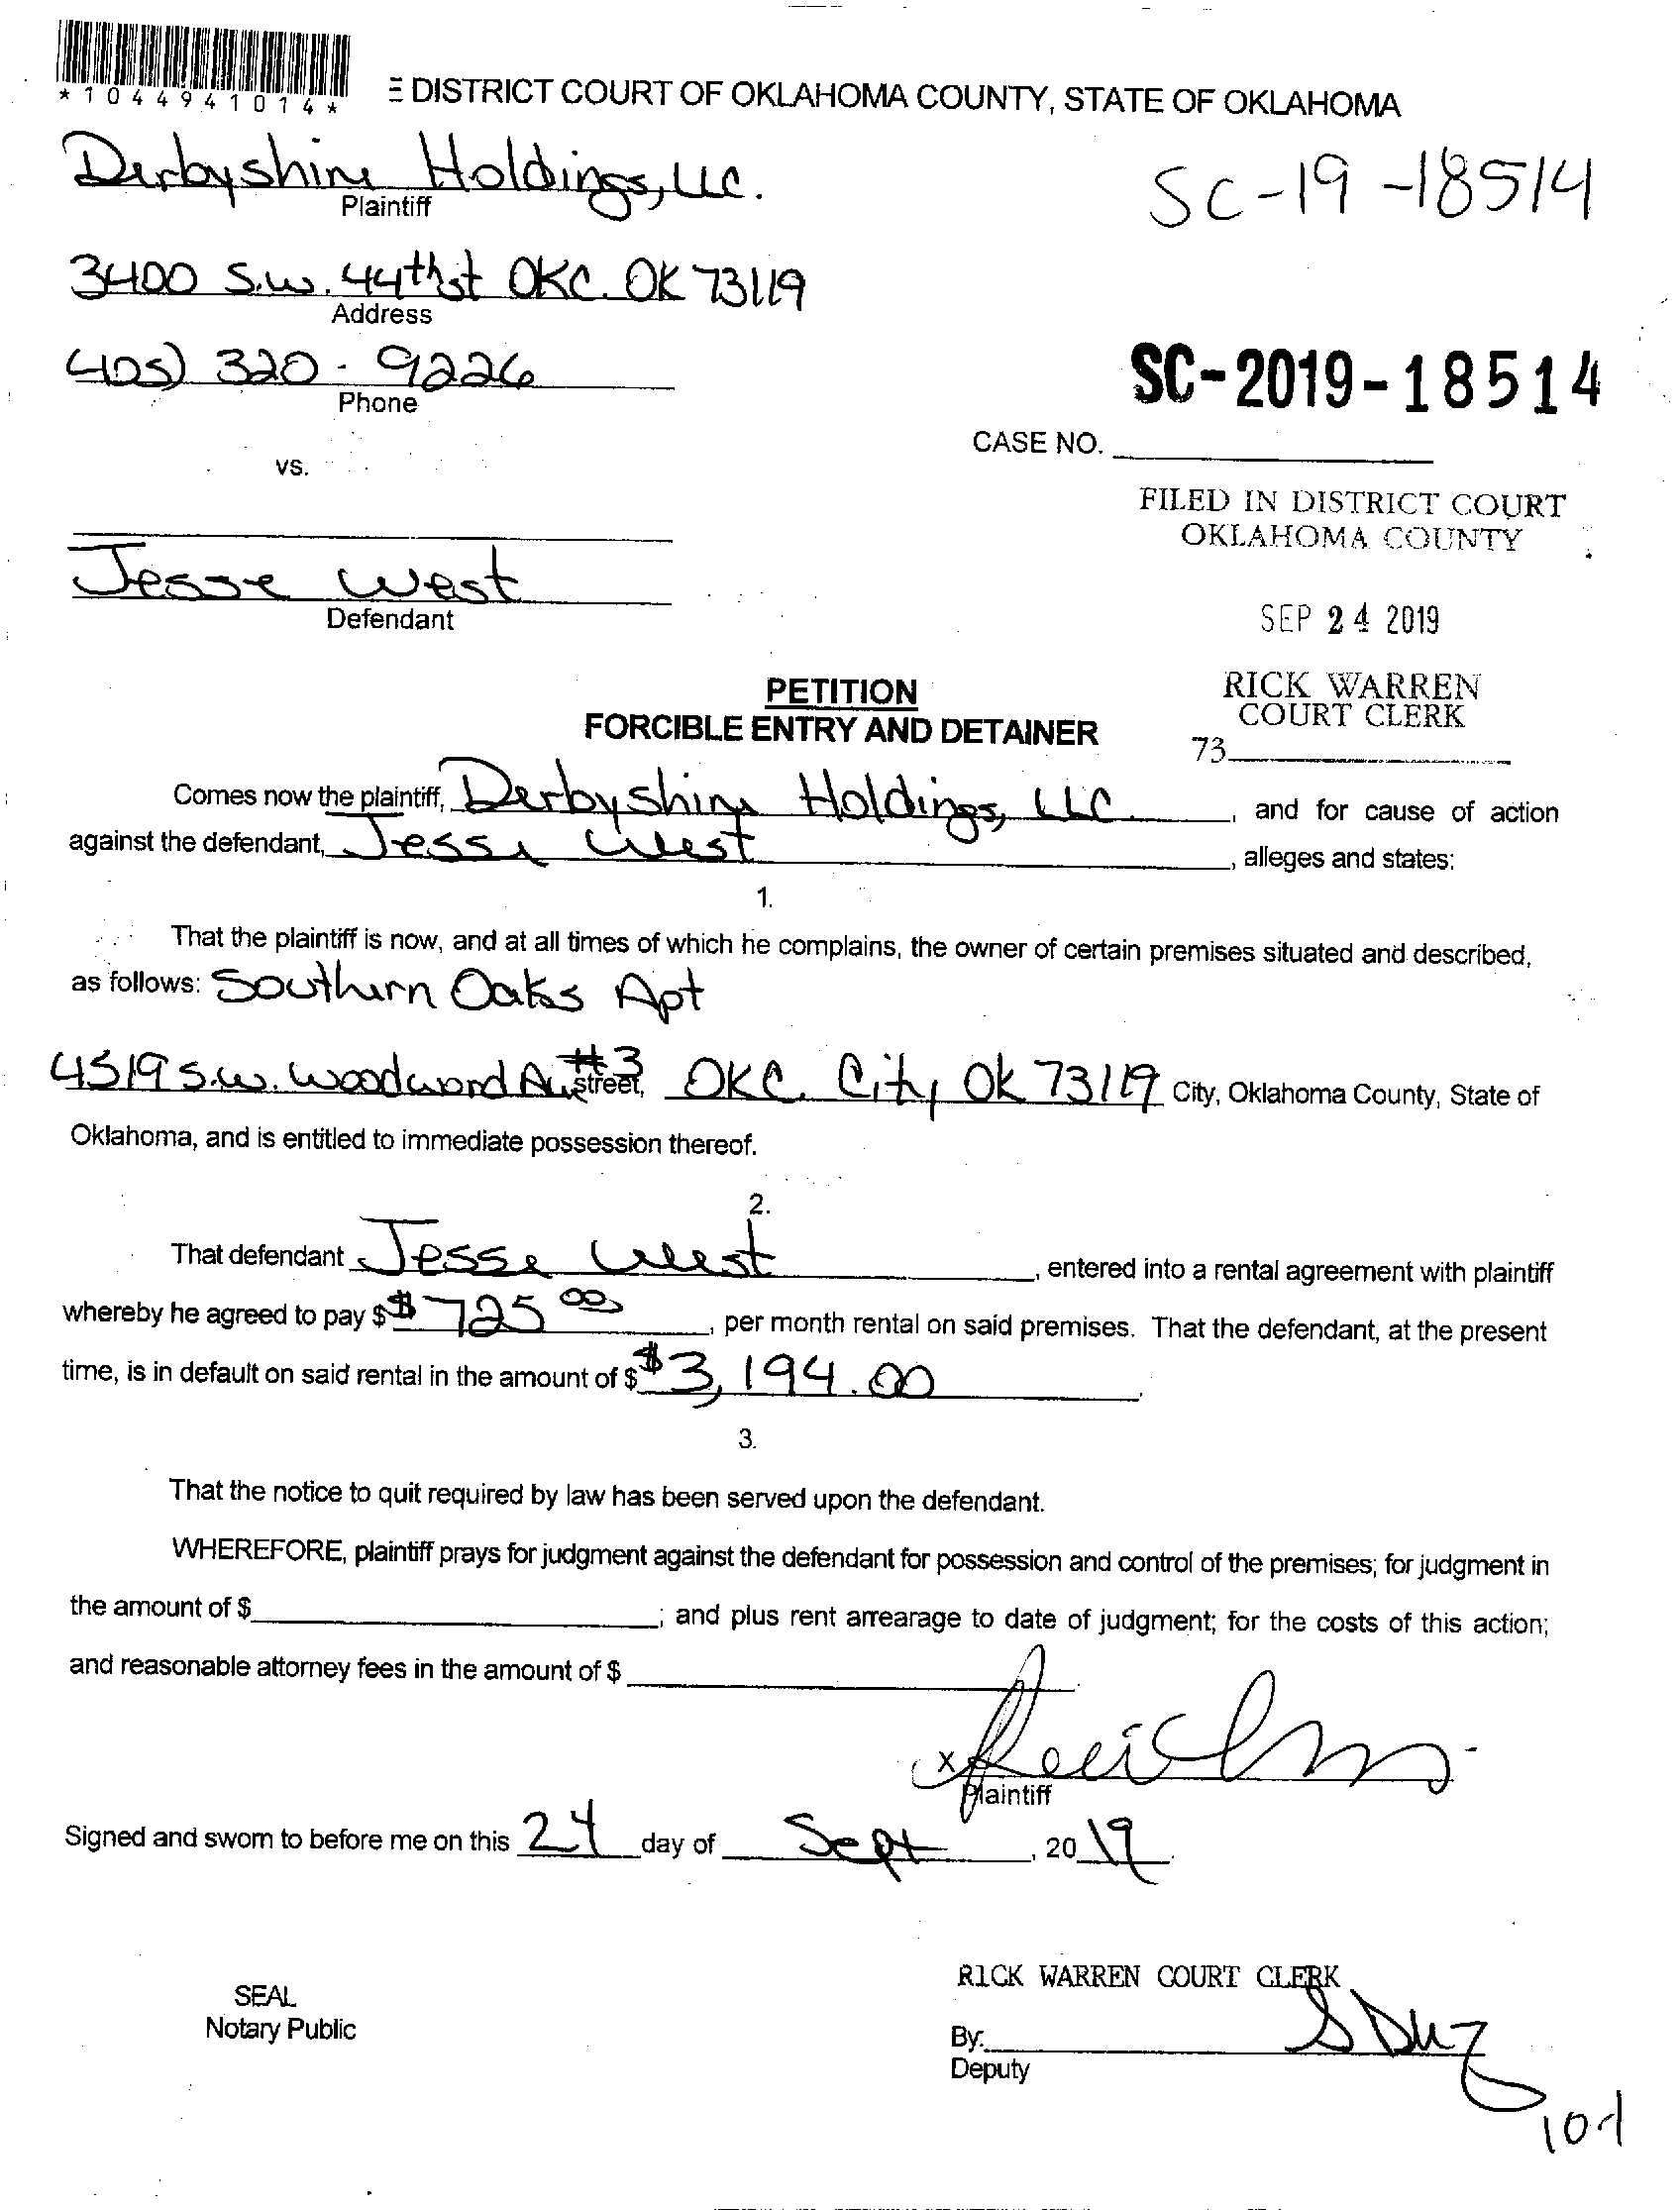 *1044941014*
E DISTRICT COURT OF OKLAHOMA COUNTY, STATE OF OKLAHOMA
Derbyshire Holdings, LLC.
Plaintiff
SC-19-18514
3400 S.W. 44th st OKC. OK 73119
Address
(405) 320-9226
Phone
SC-2019-18514
CASE NO.
vs.
FILED IN DISTRICT COURT
OKLAHOMA COUNTY
Jesse West
Defendant
SEP 24 2019
PETITION
FORCIBLE ENTRY AND DETAINER
RICK WARREN
COURT CLERK
73
Comes now the plaintiff, Derbyshire Holdings, LLC. , and for cause of action
against the defendant, Jesse West , alleges and states:
1.
That the plaintiff is now, and at all times of which he complains, the owner of certain premises situated and described,
as follows: Southern Oaks Apt
4519 S.W. Woodward Ave #3 street, OKC. City, OK 73119 City, Oklahoma County, State of
Oklahoma, and is entitled to immediate possession thereof.
2.
That defendant Jesse West , entered into a rental agreement with plaintiff
whereby he agreed to pay $ $725 00 , per month rental on said premises. That the defendant, at the present
time, is in default on said rental in the amount of $ $3,194.00 .
3.
That the notice to quit required by law has been served upon the defendant.
WHEREFORE, plaintiff prays for judgment against the defendant for possession and control of the premises; for judgment in
the amount of $ ; and plus rent arrearage to date of judgment; for the costs of this action;
and reasonable attorney fees in the amount of $
x
Plaintiff
Signed and sworn to before me on this 24 day of Sept , 20 19 .
RICK WARREN COURT CLERK
SEAL
Notary Public
By:
Deputy